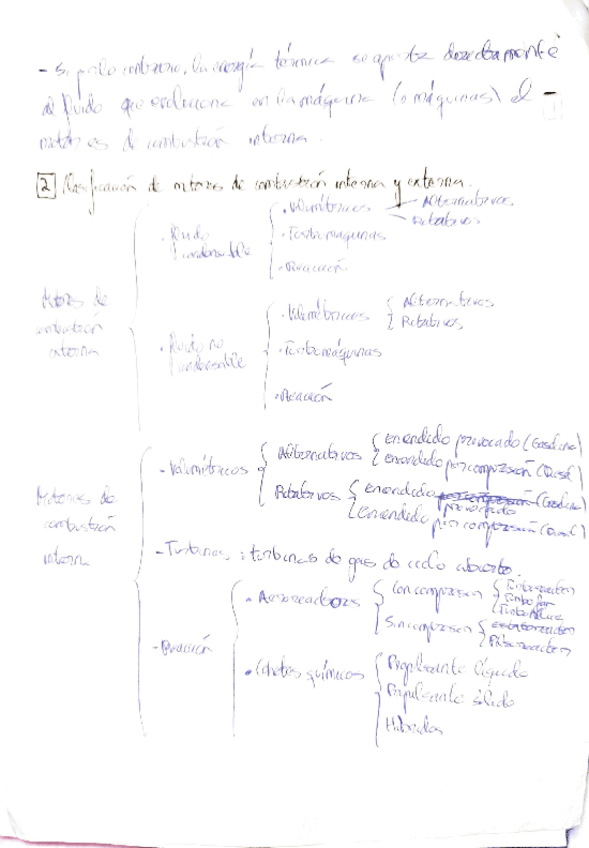 - Si por lo contrario, la energía térmica se aporta directamente
al fluido que evoluciona en la máquina (o máquinas) el
motor es de combustión interna.
2 Clasificación de motores de combustión interna y externa.
Motores de combustión externa
· Fluido condensable
· Volumétricos
Alternativos
Rotativos
· Turbomáquinas
· Reacción
· Fluido no condensable
· Volumétricos
Alternativos
Rotativos
· Turbomáquinas
· Reacción
Motores de combustión interna
- Volumétricos
Alternativos
encendido provocado (Gasolina)
encendido por compresión (Diesel)
Rotativos
encendido provocado (Gasolina)
encendido por compresión (Diesel)
- Turbinas: turbinas de gas de ciclo abierto.
- Reacción
· Aerorreactores
Con compresor
Turborreactor
Turbofan
Turbohélice
Sin compresor
Pulsorreactor
· Cohetes químicos
Propulsante líquido
Propulsante sólido
Híbridos